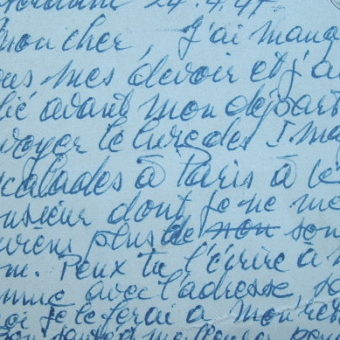 24.4.47
mon cher, J'ai manq
mes devoir et j'a
lié avant mon départ
voyer le livre des Ima
calades à Paris à ce
onsieur dont je ne me
uviens plus de non son
m. Peux tu l'écrire à m
avec l'adresse, sa
oi je le ferai à mon ret